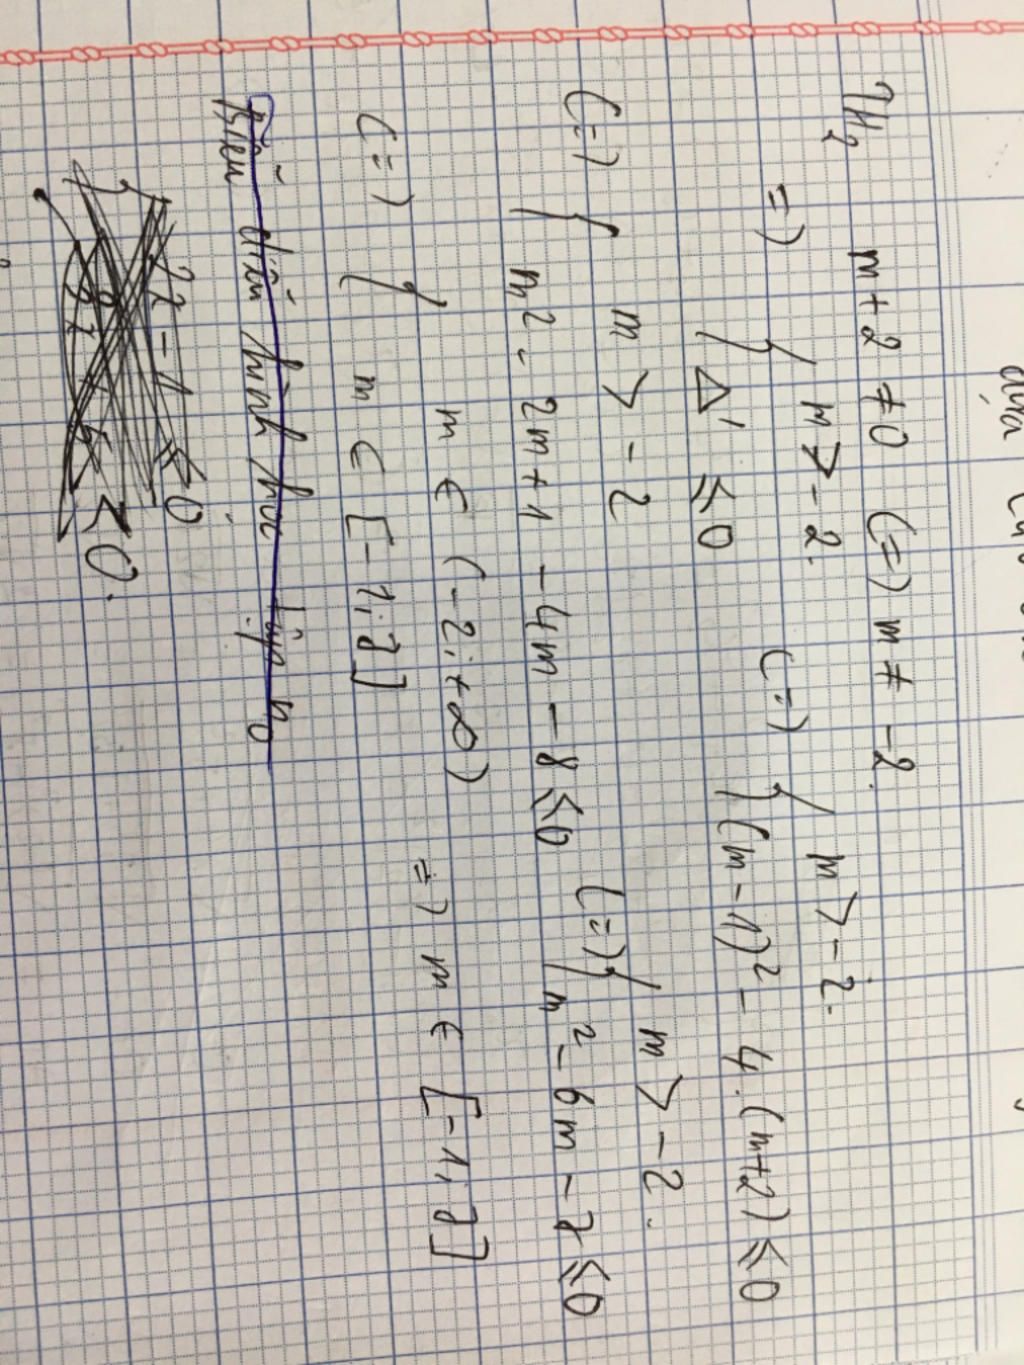 TH2 m + 2 ≠ 0 (=) m ≠ -2.
=) { m > -2. (=) { m > -2.
Δ' ⩽ 0 (m - 1)² - 4.(m+2) ⩽ 0
(=) { m > -2 (=) { m > -2.
m2 - 2m + 1 - 4m - 8 ⩽ 0 m² - 6m - 7 ⩽ 0
(=) { m ∈ (-2; +∞) =) m ∈ [-1; 7]
m ∈ [-1; 7]
Biểu diễn hình học tập no
2x - 1 ⩽ 0